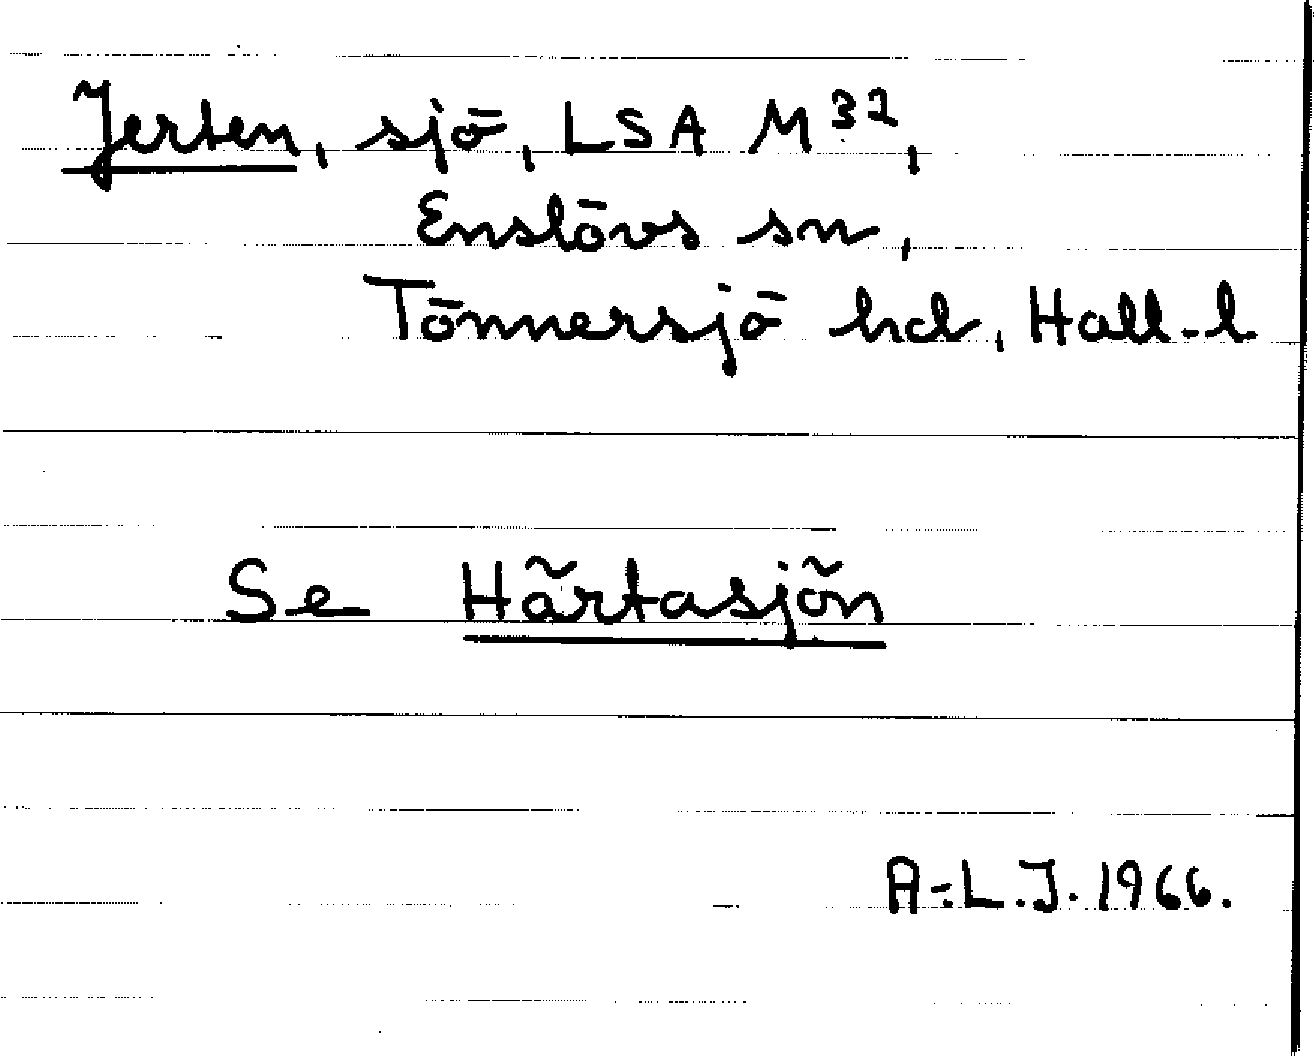 Jerten, sjö, LSA M 32,
Enslövs sn,
Tönnersjö hd, Hall-l
Se Härtasjön
A-L.J. 1966.